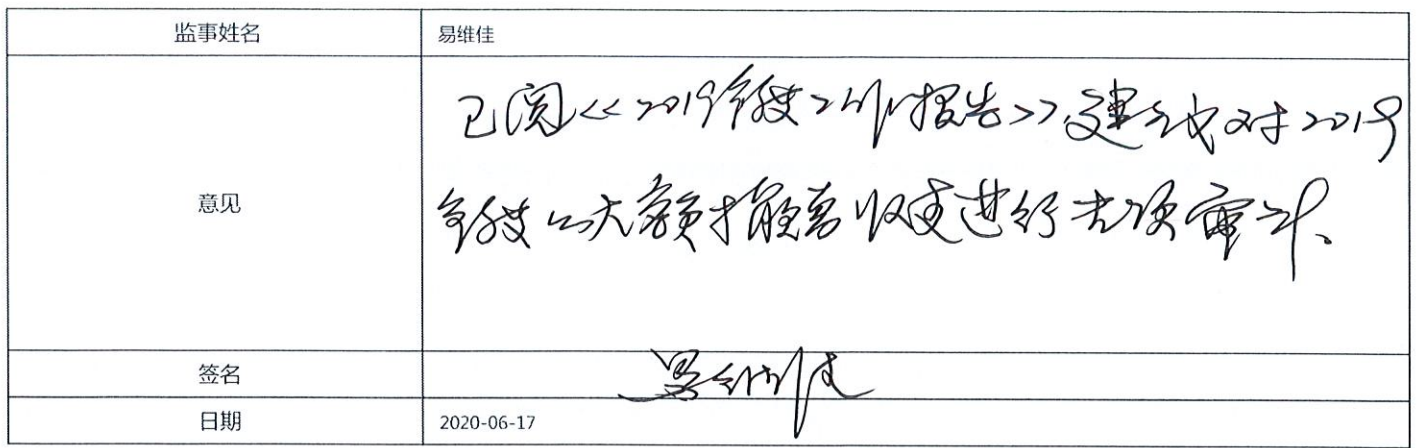 监事姓名 易维佳
意见
已阅<<2019年度工作报告>>,建议对2019
年度大额捐赠收支进行专项审计。
签名 易维佳
日期 2020-06-17